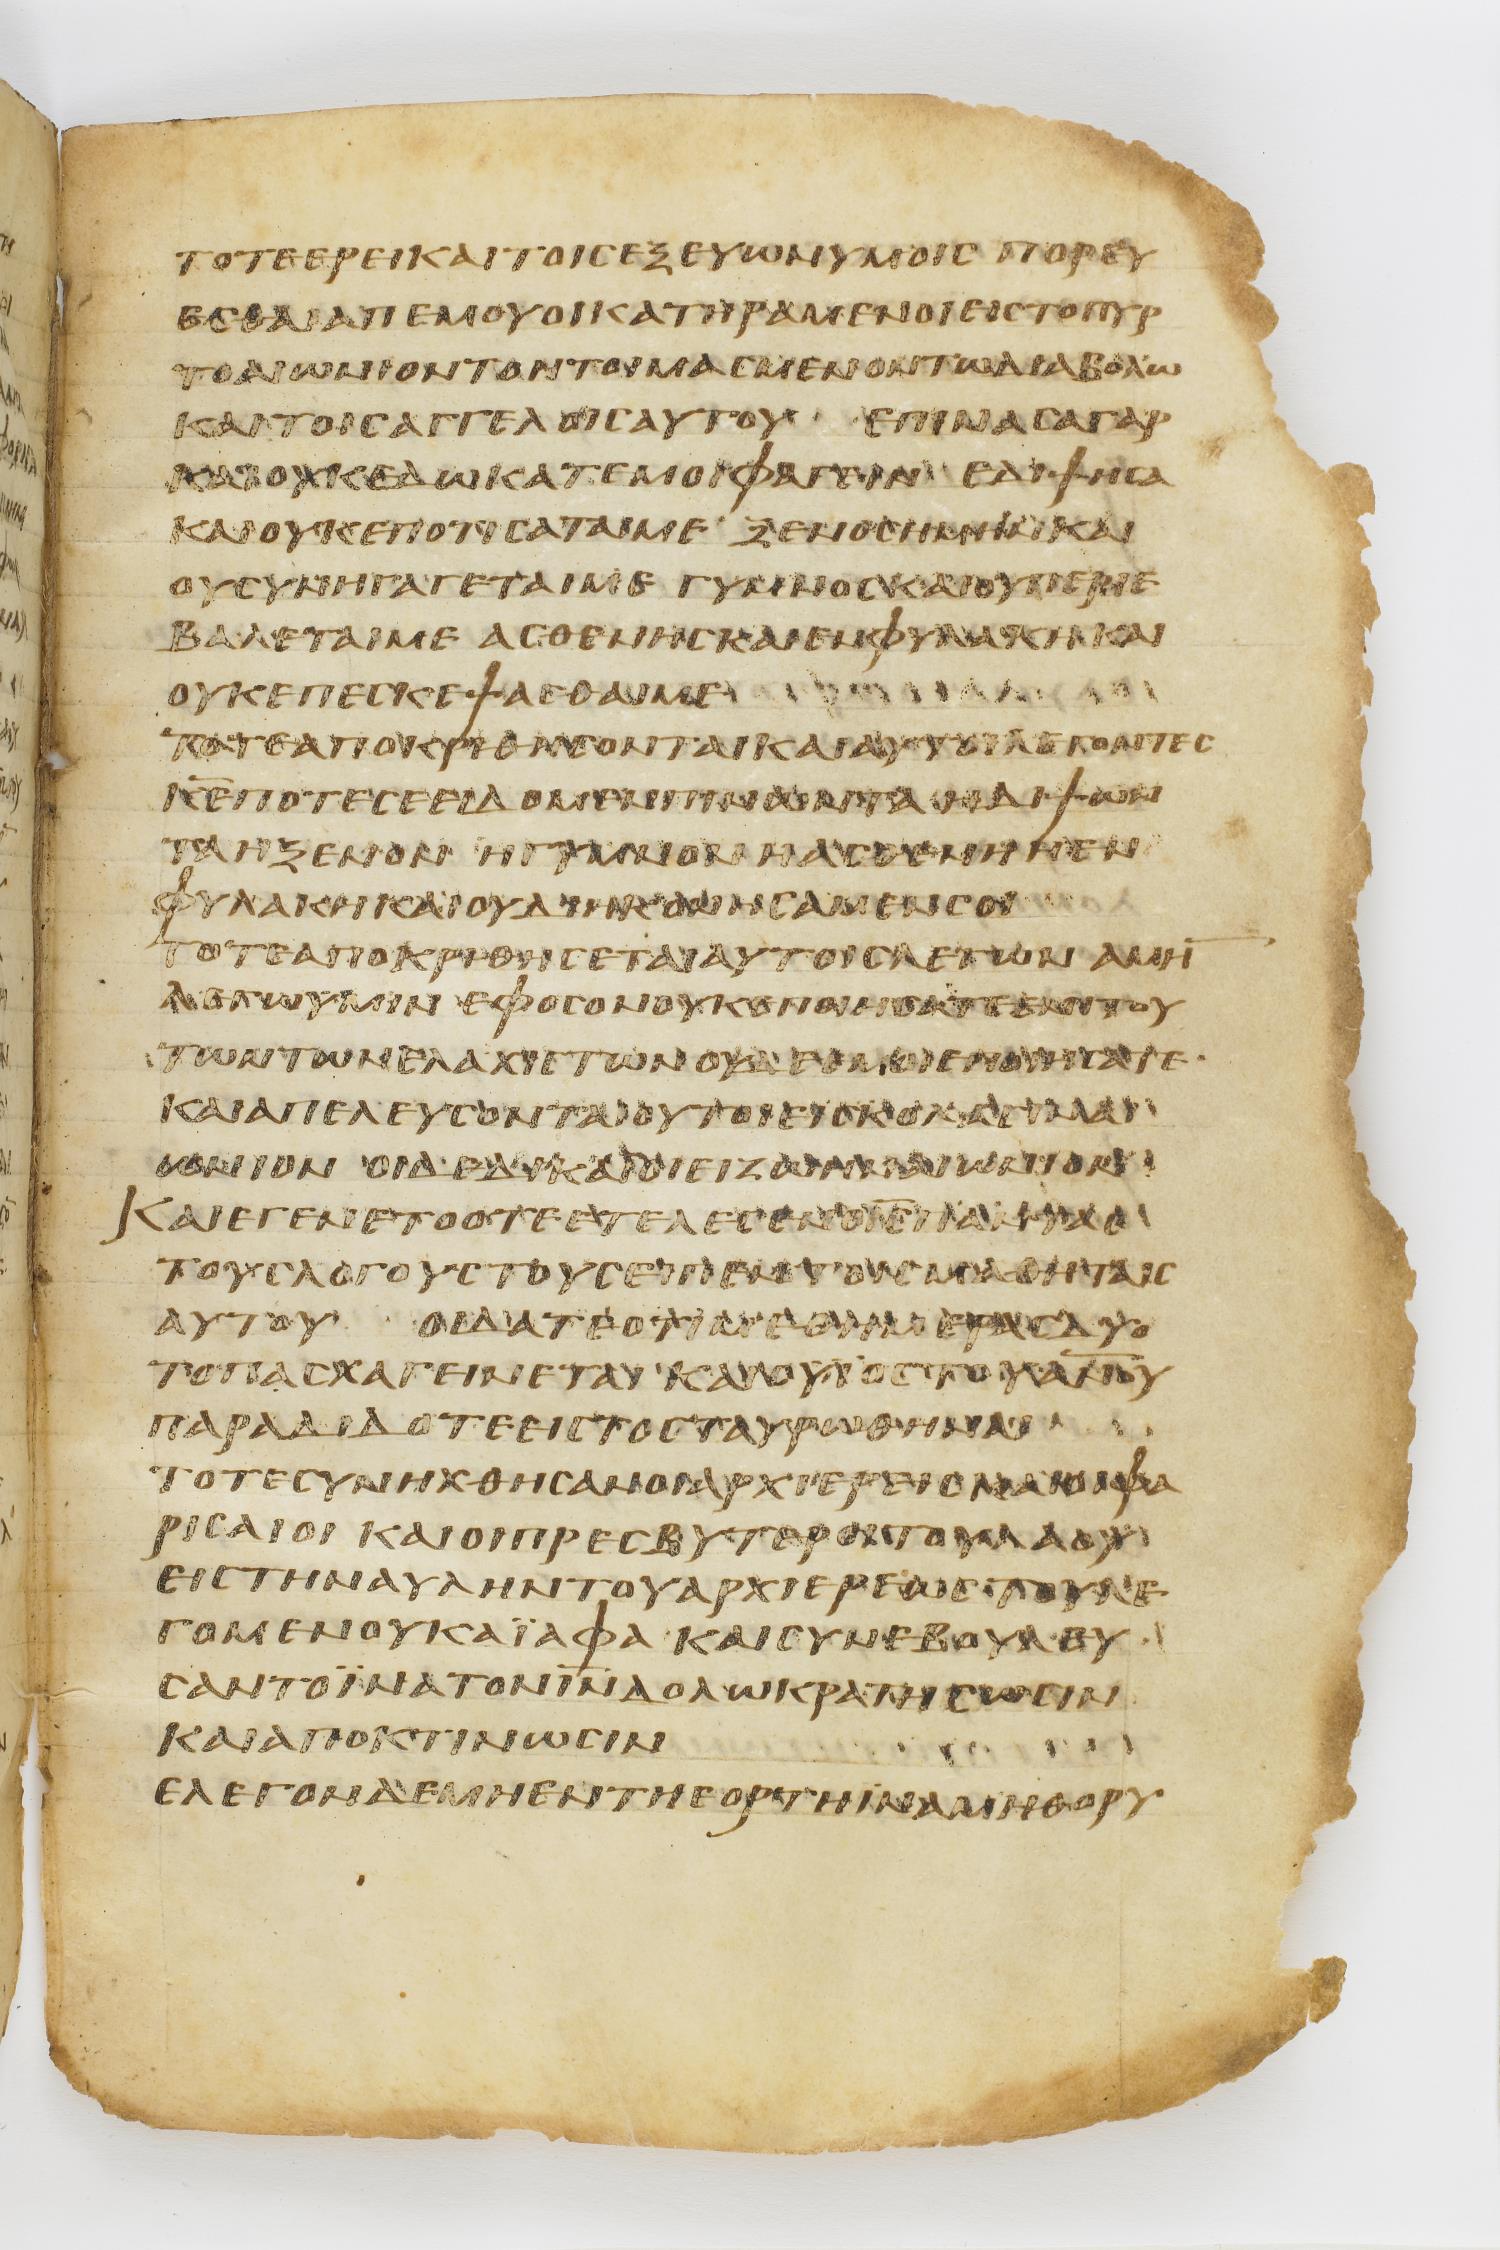 ΤΟΤΕΕΡΕΙΚΑΙΤΟΙΣΕΞΕΥΩΝΥΜΟΙΣ ΠΟΡΕΥ
ΕΣΘΑΙΑΠΕΜΟΥΟΙΚΑΤΗΡΑΜΕΝΟΙΕΙΣΤΟΠΥΡ
ΤΟΑΙΩΝΙΟΝΤΟΗΤΟΙΜΑΣΜΕΝΟΝΤΩΔΙΑΒΟΛΩ
ΚΑΙΤΟΙΣΑΓΓΕΛΟΙΣΑΥΤΟΥ ΕΠΙΝΑΣΑΓΑΡ
ΚΑΙΟΥΚΕΔΩΚΑΤΕΜΟΙΦΑΓΕΙΝ ΕΔΙΨΗΣΑ
ΚΑΙΟΥΚΕΠΟΤΙΣΑΤΑΙΜΕ ΞΕΝΟΣΗΜΗΝΚΑΙ
ΟΥΣΥΝΗΓΑΓΕΤΑΙΜΕ ΓΥΜΝΟΣΚΑΙΟΥΠΕΡΙΕ
ΒΑΛΕΤΑΙΜΕ ΑΣΘΕΝΗΣΚΑΙΕΝΦΥΛΑΚΗΚΑΙ
ΟΥΚΕΠΕΣΚΕΨΑΣΘΑΙΜΕ
ΤΟΤΕΑΠΟΚΡΙΘΗΣΟΝΤΑΙΚΑΙΑΥΤΟΙΛΕΓΟΝΤΕΣ
Κ̅Ε̅ΠΟΤΕΣΕΕΙΔΟΜΕΝΠΙΝΩΝΤΑ ΗΔΙΨΩΝ
ΤΑΗΞΕΝΟΝ ΗΓΥΜΝΟΝΗΑΣΘΕΝΗΗΕΝ
ΦΥΛΑΚΗΚΑΙΟΥΔΙΗΚΟΝΗΣΑΜΕΝΣΟΙ
ΤΟΤΕΑΠΟΚΡΙΘΗΣΕΤΑΙΑΥΤΟΙΣΛΕΓΩΝ ΑΜΗ̅
ΛΕΓΩΥΜΙΝ ΕΦΟΣΟΝΟΥΚΕΠΟΙΗΣΑΤΕΕΝΙΤΟΥ
ΤΩΝΤΩΝΕΛΑΧΙΣΤΩΝΟΥΔΕΕΜΟΙΕΠΟΙΗΣΑΤΕ
ΚΑΙΑΠΕΛΕΥΣΟΝΤΑΙΟΥΤΟΙΕΙΣΚΟΛΑΣΙΝΑΙ
ΩΝΙΟΝ ΟΙΔΕΔΙΚΑΙΟΙΕΙΣΖΩΗΝΑΙΩΝΙΟΝ
ΚΑΙΕΓΕΝΕΤΟΟΤΕΕΤΕΛΕΣΕΝΟΙ̅Σ̅ΠΑΝΤΑΣ
ΤΟΥΣΛΟΓΟΥΣΤΟΥΤΟΥΣΕΙΠΕΝΤΟΙΣΜΑΘΗΤΑΙΣ
ΑΥΤΟΥ ΟΙΔΑΤΕΟΤΙΜΕΤΑΔΥΟΗΜΕΡΑΣ
ΤΟΠΑΣΧΑΓΕΙΝΕΤΑΙ ΚΑΙΟΥΙΟΣΤΟΥΑ̅Ν̅Ο̅Υ̅
ΠΑΡΑΔΙΔΟΤΕΕΙΣΤΟΣΤΑΥΡΩΘΗΝΑΙ
ΤΟΤΕΣΥΝΗΧΘΗΣΑΝΟΙΑΡΧΙΕΡΕΙΣΚΑΙΟΙΦΑ
ΡΙΣΑΙΟΙ ΚΑΙΟΙΠΡΕΣΒΥΤΕΡΟΙΤΟΥΛΑΟΥ
ΕΙΣΤΗΝΑΥΛΗΝΤΟΥΑΡΧΙΕΡΕΩΣ ΤΟΥΛΕ
ΓΟΜΕΝΟΥΚΑΪΑΦΑ ΚΑΙΣΥΝΕΒΟΥΛΕΥ
ΣΑΝΤΟΪΝΑΤΟΝΙ̅Ν̅ΔΟΛΩΚΡΑΤΗΣΩΣΙΝ
ΚΑΙΑΠΟΚΤΙΝΩΣΙΝ
ΕΛΕΓΟΝΔΕΜΗΕΝΤΗΕΟΡΤΗΪΝΑΜΗΘΟΡΥ